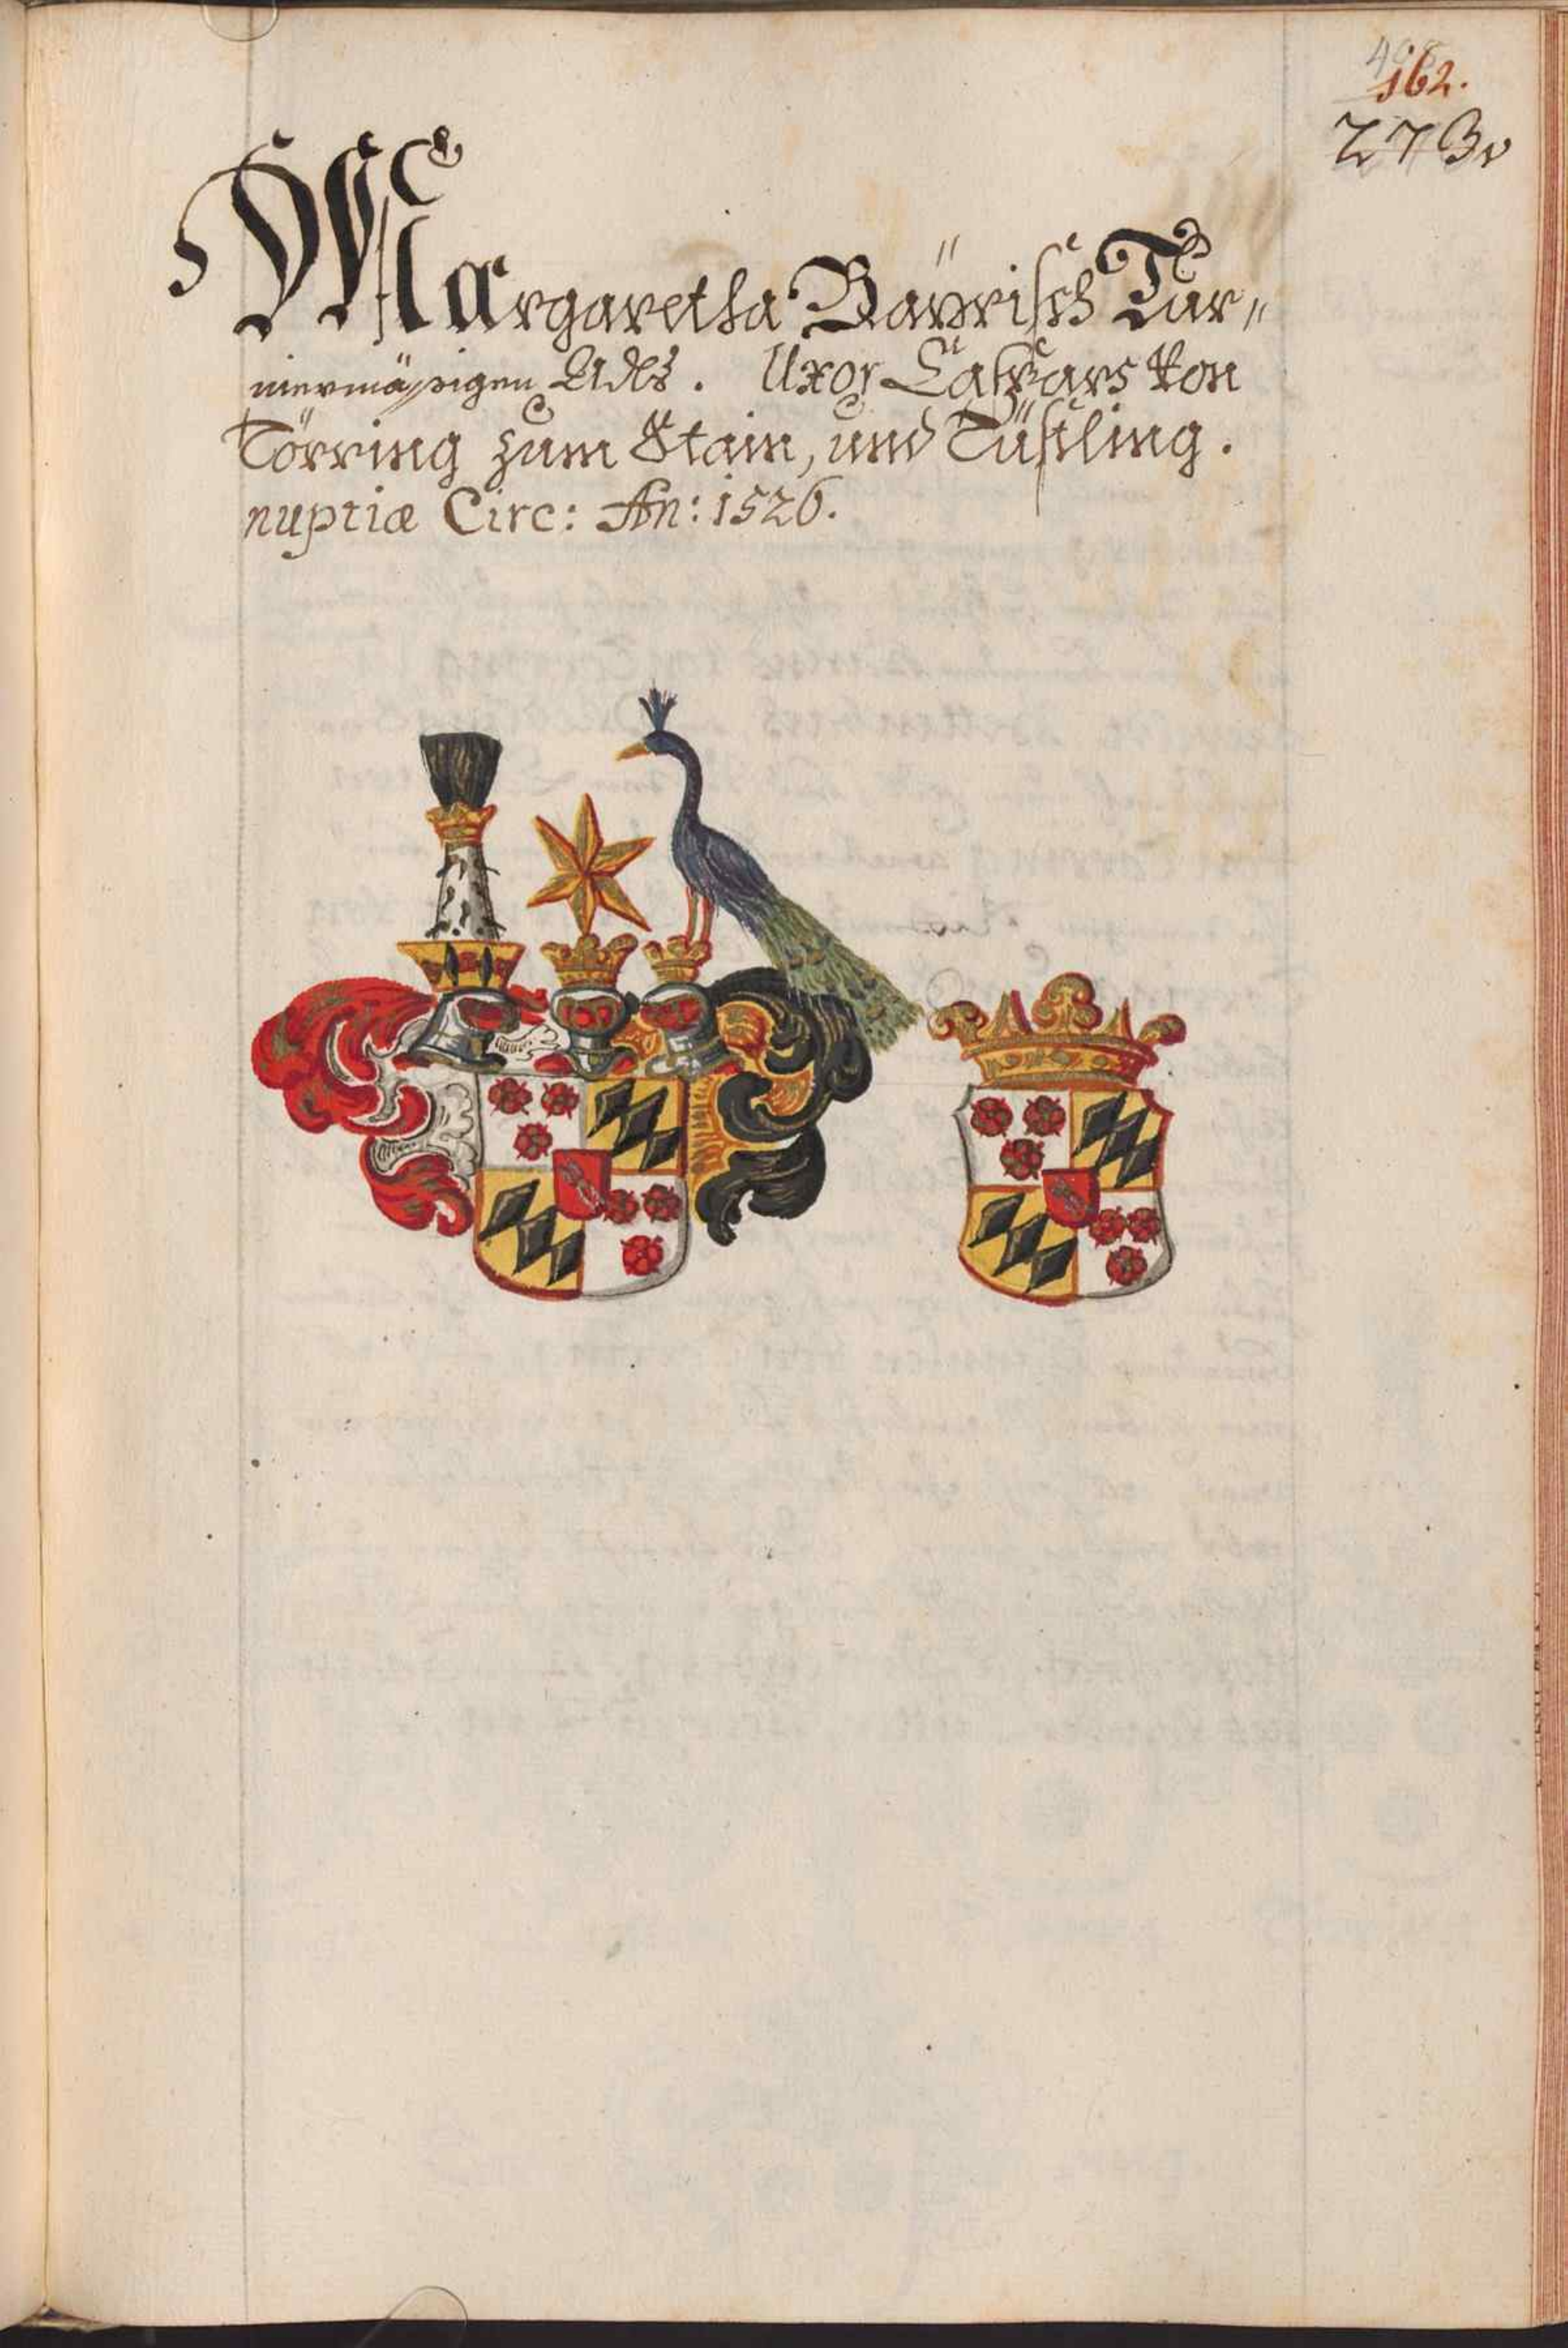 162.
273v
Margaretha Bäyrisch Tur„
niermässigen Adls. Uxor Caspars von
Törring zum Stain, und Tüssling.
nuptiæ Circ: An: 1526.